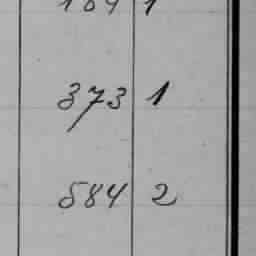 373 1
584 2